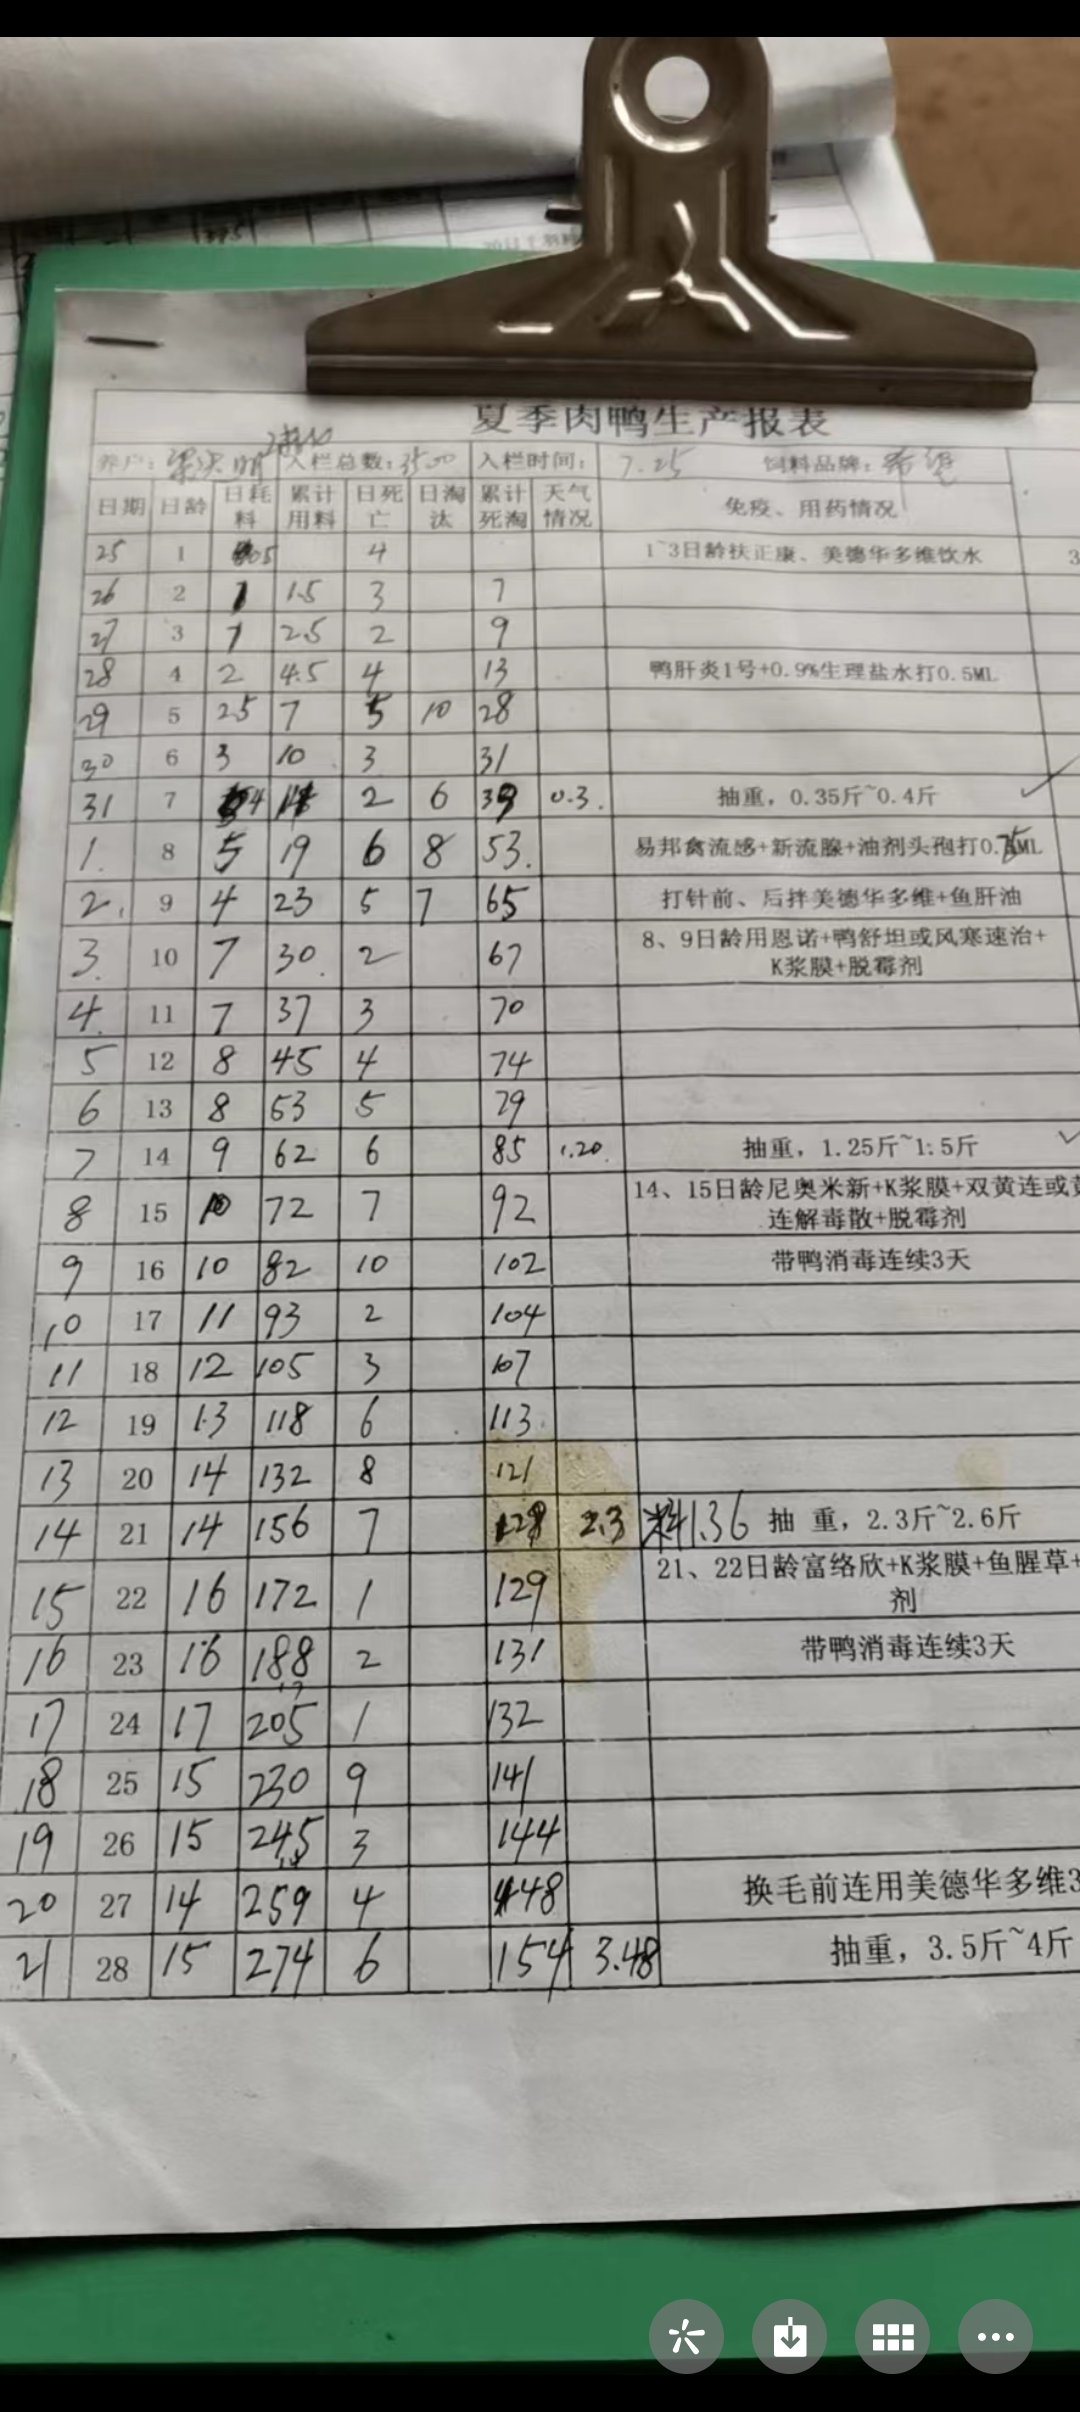 夏季肉鸭生产报表
养户: 入栏总数: 3500 入栏时间: 7.25 饲料品牌: 希望
日期 日龄 日耗料 累计用料 日死亡 日淘汰 累计死淘 天气情况 免疫、用药情况
25 1 05 4 1~3日龄扶正康、美德华多维饮水 3
26 2 1 1.5 3 7
27 3 1 2.5 2 9
28 4 2 4.5 4 13 鸭肝炎1号+0.9%生理盐水打0.5ML
29 5 25 7 5 10 28
30 6 3 10 3 31
31 7 4 14 2 6 39 0.3. 抽重，0.35斤~0.4斤
1. 8 5 19 6 8 53. 易邦禽流感+新流腺+油剂头孢打0.75ML
2. 9 4 23 5 7 65 打针前、后拌美德华多维+鱼肝油
3. 10 7 30. 2 67 8、9日龄用恩诺+鸭舒坦或风寒速治+
K浆膜+脱霉剂
4. 11 7 37 3 70
5 12 8 45 4 74
6 13 8 53 5 79
7 14 9 62 6 85 1.20. 抽重，1.25斤~1.5斤
8 15 10 72 7 92 14、15日龄尼奥米新+K浆膜+双黄连或黄
连解毒散+脱霉剂
9 16 10 82 10 102 带鸭消毒连续3天
10 17 11 93 2 104
11 18 12 105 3 107
12 19 13 118 6 113.
13 20 14 132 8 121
14 21 14 156 7 128 2.3 料1.36 抽 重，2.3斤~2.6斤
15 22 16 172 1 129 21、22日龄富络欣+K浆膜+鱼腥草+
剂
16 23 16 188 2 131 带鸭消毒连续3天
17 24 17 205 1 132
18 25 15 230 9 141
19 26 15 245 3 144
20 27 14 259 4 148 换毛前连用美德华多维3
21 28 15 274 6 154 3.48 抽重，3.5斤~4斤